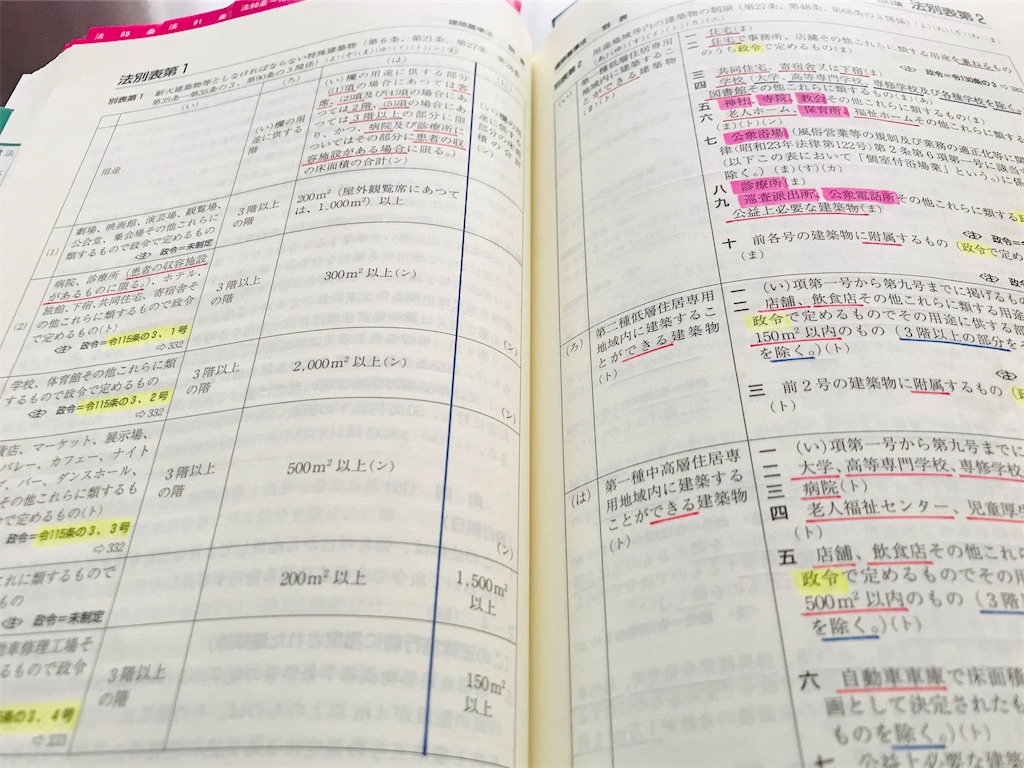 法 68 条
法 91 条
建築基準法
法別表第1
別表第1 耐火建築物等としなければならない特殊建築物（第6条、第21条、第27条
第35条―第35条の3、第90条の3関係）
(い)
(ろ)
(は)
用途
(い)欄の用
途に供する
階
(い)欄の用途に供する部分
(1)項の場合にあつては客
席、(2)項及び(4)項の場合にあ
つては2階、(5)項の場合にあ
つては3階以上の部分に限
り、かつ、病院及び診療所に
ついてはその部分に患者の収
容施設がある場合に限る。）
の床面積の合計(ン)
(1)
劇場、映画館、演芸場、観覧場、
公会堂、集会場その他これらに
類するもので政令で定めるもの
注 政令=未制定
3階以上
の階
200m²（屋外観覧席にあつて
は、1,000m²）以上
(2)
病院、診療所（患者の収容施設
があるものに限る。）、ホテル、
旅館、下宿、共同住宅、寄宿舎そ
の他これらに類するもので政令
で定めるもの(ト)
注 政令=令115条の3、1号
⇨332
3階以上
の階
300m²以上(ン)
(ン)
学校、体育館その他これらに類
するもので政令で定めるもの
注 政令=令115条の3、2号
⇨332
3階以上
の階
2,000m²以上(ン)
(ン)
貨店、マーケット、展示場、
バレー、カフェー、ナイト
、バー、ダンスホール、
その他これらに類するも
で定めるもの(ト)
政令=令115条の3、3号
⇨332
3階以上
の階
500m²以上(ン)
(ン)
これに類するもので
もの
注 政令=未制定
200m²以上
1,500m²
以上
動車修理工場そ
るもので政令
条の3、4号
⇨333
3階以上
の階
150m²
以上
法別表第2
別表第2
用途地域等内の建築物の制限（第27条、第48条、第68条の3関係）
(い)
第一種低層住居専用
地域内に建築するこ
とができる建築物
(ま)(ト)
一 住宅(ま)
二 住宅で事務所、店舗その他これらに類する用途を兼ねるもの
のうち政令で定めるもの(ま)
三 共同住宅、寄宿舎又は下宿(ま)
四 学校（大学、高等専門学校、専修学校及び各種学校を除く。）
図書館その他これらに類するもの(ま)
五 神社、寺院、教会その他これらに類するもの(ま)
六 老人ホーム、保育所、福祉ホームその他これらに類するもの
(ま)(ト)(ン)
七 公衆浴場（風俗営業等の規制及び業務の適正化等に関
律（昭和23年法律第122号）第2条第6項第一号に該当す
（以下この表において「個室付浴場業」という。）に係
除く。）(ま)(す)(カ)
八 診療所(ま)
九 巡査派出所、公衆電話所その他これらに類する
公益上必要な建築物(ま)
十 前各号の建築物に附属するもの（政令で定め
(ま)
(ろ)
第二種低層住居専用
地域内に建築するこ
とができる建築物
(ト)
一 (い)項第一号から第九号までに掲げるもの
二 店舗、飲食店その他これらに類する用途
政令で定めるものでその用途に供する部
150m²以内のもの（3階以上の部分を
を除く。）(ト)
三 前2号の建築物に附属するもの
(ト)
(は)
第一種中高層住居専
用地域内に建築する
ことができる建築物
(ト)
一 (い)項第一号から第九号までに
二 大学、高等専門学校、専修学校
三 病院(ト)
四 老人福祉センター、児童厚生
五 店舗、飲食店その他これら
政令で定めるものでその用
500m²以内のもの（3階
を除く。）(ト)
六 自動車車庫で床面積
画として決定されたも
ものを除く。）(ト)
七 公益上必要な建築